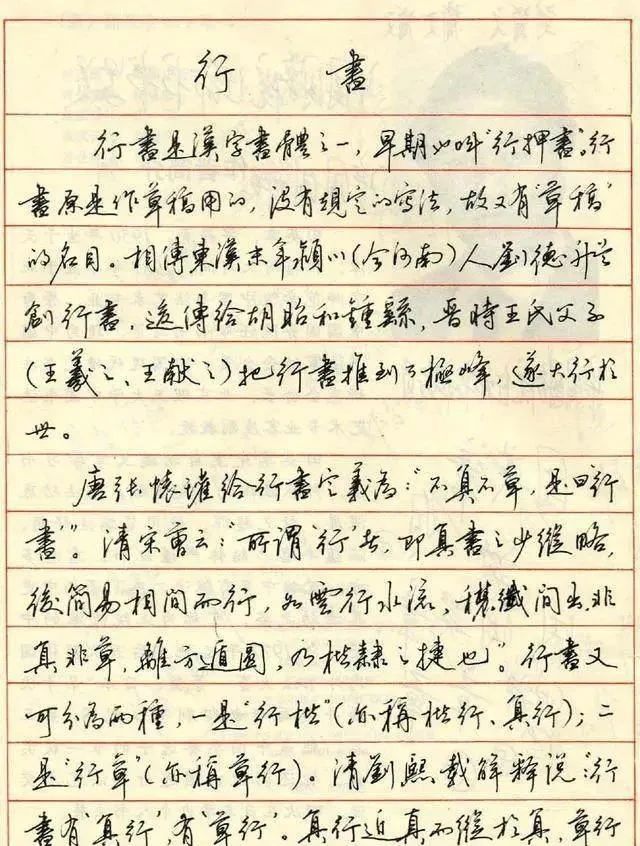 行書
行書是漢字書體之一，早期也叫“行押書”，行
書原是作草稿用的，沒有規定的寫法，故又有“草稿”
的名目。相傳東漢末年潁川（今河南）人劉德升首
創行書，遂傳給胡昭和鍾繇，晉時王氏父子
（王羲之、王献之）把行書推到了極峰，遂大行於
世。
唐張懷瓘給行書定義為：“不真不草，是曰‘行
書’”。清宋曹云：“所謂行者，即真書之少縱略，
後簡易相間而行，如雲行水流，穠纖間出，非
真非草，離方遁圓，乃楷隸之捷也”。行書又
可分為兩種，一是“行楷”（亦稱楷行、真行）；二
是“行草”（亦稱草行）。清劉熙載解释說：“行
書有‘真行’，有‘草行’。真行近真而縱於真，草行